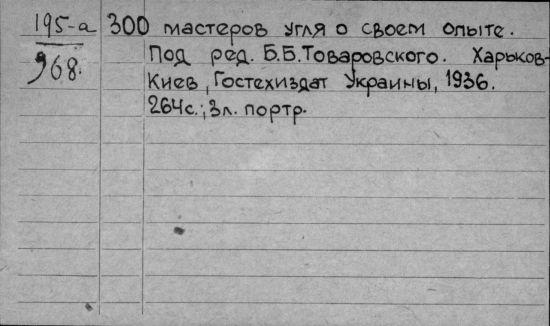 195-а 300 мастеров угля о своем опыте.
968. Под ред. Б.Б.Товаровского. Харьков-
Киев, Гостехиздат Украины, 1936.
264с.; 3л. портр.